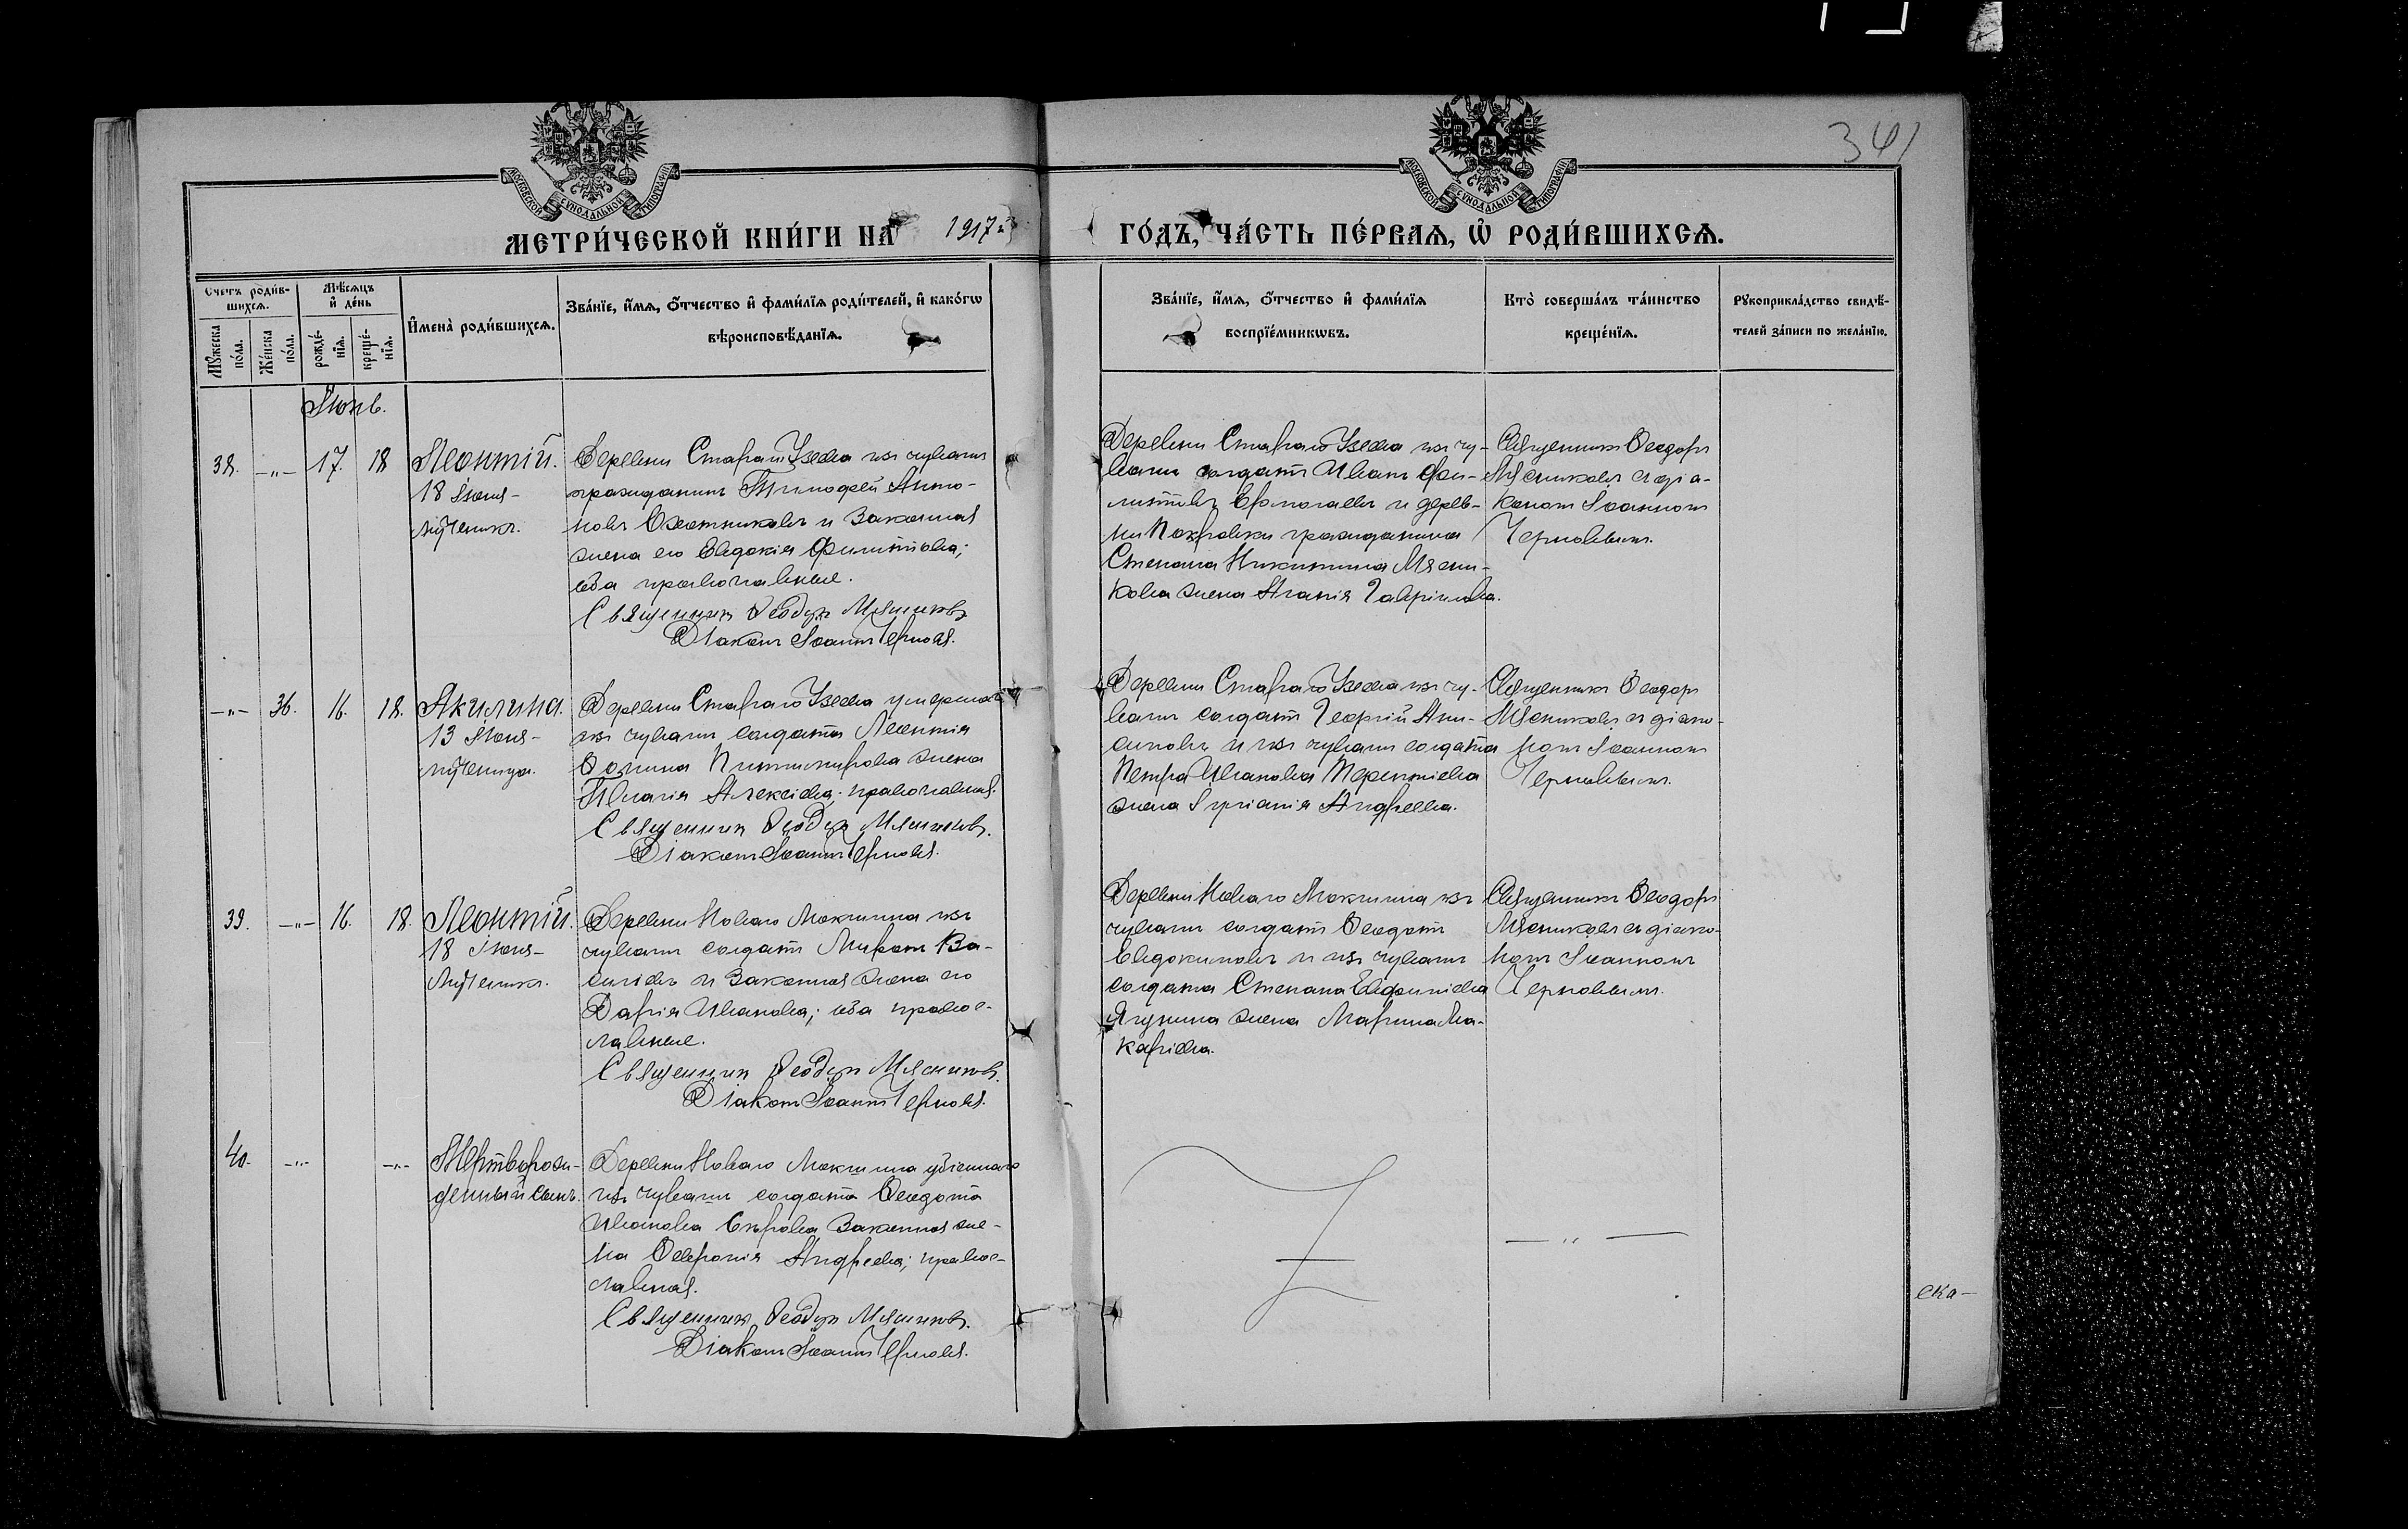 341
МОСКОВСКОЙ СѴНОДАЛЬНОЙ ТИПОГРАФІИ
МОСКОВСКОЙ СѴНОДАЛЬНОЙ ТИПОГРАФІИ
МЕТРИ́ЧЕСКОЙ КНИ́ГИ НА 1917й
ГО́ДЪ, ЧА́СТЬ ПЕ́РВАѦ, Ѽ РОДИ́ВШИХСѦ.
Счетъ роди́в-
шихсѧ.
Мѣ́сѧцъ
и҆ де́нь
Мꙋ́жеска
по́ла.
Же́нска
по́ла.
рожде́-
нїѧ.
креще́-
нїѧ.
И҆мена̀ роди́вшихсѧ.
Зва́нїе, и҆́мѧ, ѻ҆́тчество и҆ фами́лїѧ роди́телей, и҆ како́гѡ
вѣроисповѣ́данїѧ.
Зва́нїе, и҆́мѧ, ѻ҆́тчество и҆ фами́лїѧ
воспрїе́мникѡвъ.
Кто̀ соверша́лъ та́инство
креще́нїѧ.
Рꙋкоприкла́дство свидѣ́-
телей за́писи по жела́нїю.
Іюнь.
38. -"- 17. 18 Леонтій.
18 Іюня-
мученикъ.
Деревни Стараго Узеева изъ чувашъ
гражданинъ Тимофей Анто-
новъ Охотниковъ и законная
жена его Евдокія Филиппова;
оба православные.
Священникъ Ѳеодоръ Мясниковъ
Діаконъ Іоаннъ Черновъ.
Деревни Стараго Узеева изъ чу-
вашъ солдатъ Иванъ Фи-
липповъ Ермолаевъ и дерев-
ни Покровки гражданина
Степана Никитина Мясни-
кова жена Агапія Гаврилова.
Священникъ Ѳеодоръ
Мясниковъ съ діа-
кономъ Іоанномъ
Черновымъ.
-"- 36. 16. 18. Акилина.
13 Іюня-
мученица.
Деревни Стараго Узеева умершаго
изъ чувашъ солдата Леонтія
Ѳомина Питиримова жена
Пелагія Алексѣева; православная.
Священникъ Ѳеодоръ Мясниковъ.
Діаконъ Іоаннъ Черновъ.
Деревни Стараго Узеева изъ чу-
вашъ солдатъ Георгій Ани-
симовъ и изъ чувашъ солдата
Петра Иванова Терентіева
жена Іуліанія Андреева.
Священникъ Ѳеодоръ
Мясниковъ съ діако-
номъ Іоанномъ
Черновымъ.
39. -"- 16. 18. Леонтій.
18 Іюня-
Мученикъ.
Деревни Новаго Мокшина изъ
чувашъ солдатъ Миронъ Ва-
сильевъ и законная жена его
Дарія Иванова; оба правос-
лавные.
Священникъ Ѳеодоръ Мясниковъ.
Діаконъ Іоаннъ Черновъ.
Деревни Новаго Мокшина изъ
чувашъ солдатъ Ѳеодотъ
Евдокимовъ и изъ чувашъ
солдата Степана Евфиміева
Ягунина жена Марина Ма-
каріева.
Священникъ Ѳеодоръ
Мясниковъ съ діако-
номъ Іоанномъ
Черновымъ.
40. -"- -"- Мертворож-
денный сынъ.
Деревни Новаго Мокшина убіеннаго
изъ чувашъ солдата Ѳеодота
Иванова законная же-
на Ѳевронія Андреева; правос-
лавная.
Священникъ Ѳеодоръ Мясниковъ.
Діаконъ Іоаннъ Черновъ.
— " —
ска-